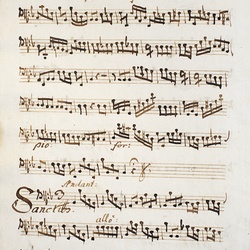 pio for:
Andant
Sanctus
allo